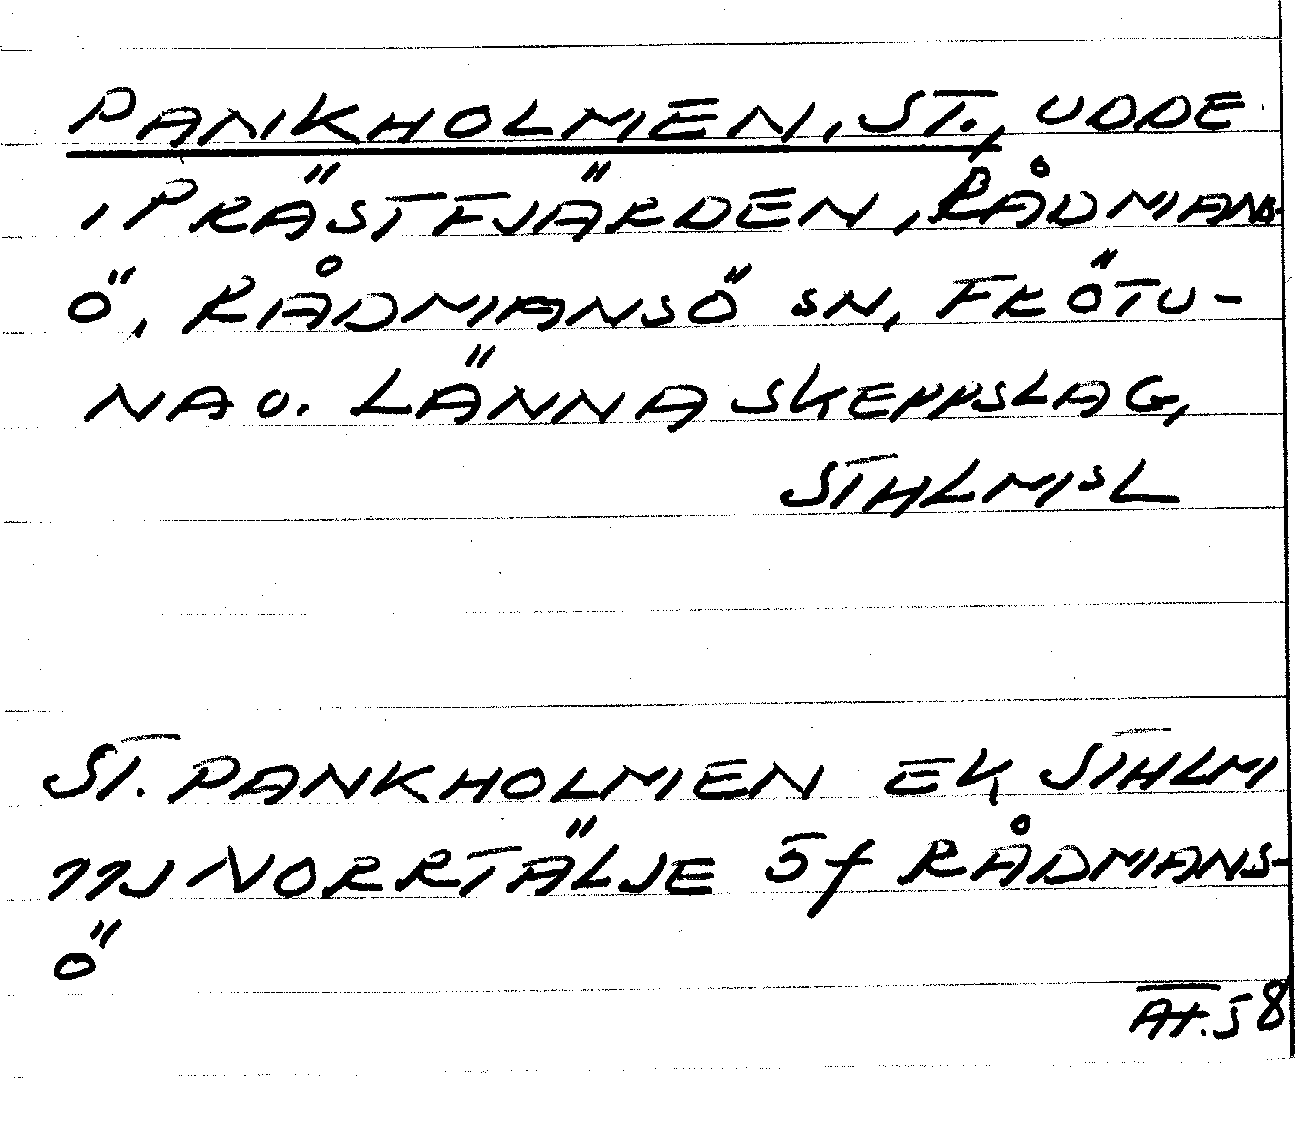 PANKHOLMEN, ST., UDDE
I PRÄSTFJÄRDEN, RÅDMANS-
Ö, RÅDMANSÖ SN, FRÖTU-
NA O. LÄNNA SKEPPSLAG,
STHLMSL
ST. PANKHOLMEN EK STHLM
11J NORRTÄLJE 5f RÅDMANS-
Ö
AH. 58